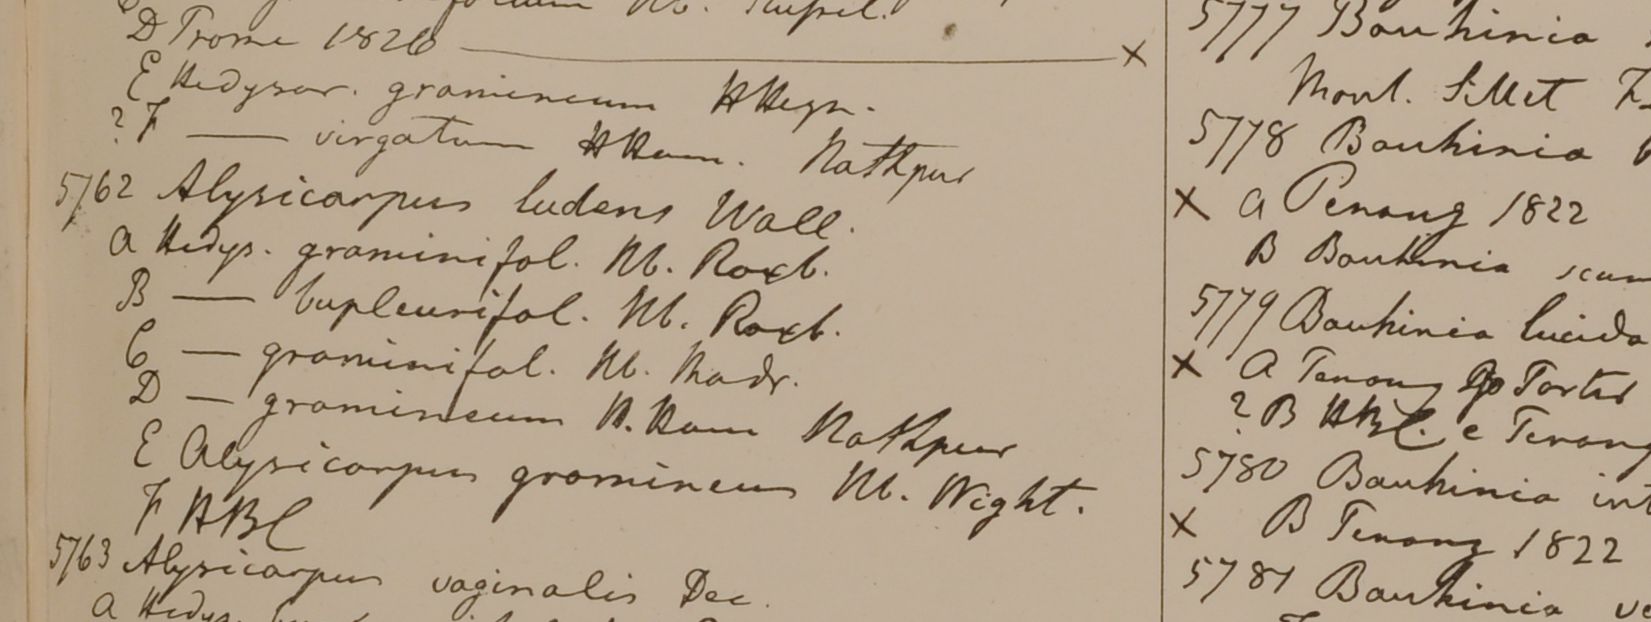 D Prome 1826 ——— x
E Hedysar. gramineum HHeyn.
? F —— virgatum HHam. Nathpur
5762 Alysicarpus ludens Wall.
a Hedys. graminifol. Hb. Roxb.
B —— bupleurifol. Hb. Roxb.
C — graminifol. Hb. Madr.
D — gramineum H. Ham Nathpur
E Alysicarpus gramineus Hb. Wight.
F HBC
5763 Alysicarpus vaginalis Dec.
5777 Bauhinia
Mont. Sillet
5778 Bauhinia
x a Penang 1822
B Bauhinia scan
5779 Bauhinia lucida
x a Penang Porter
? B HBC. e Penang
5780 Bauhinia int
x B Penang 1822
5781 Bauhinia